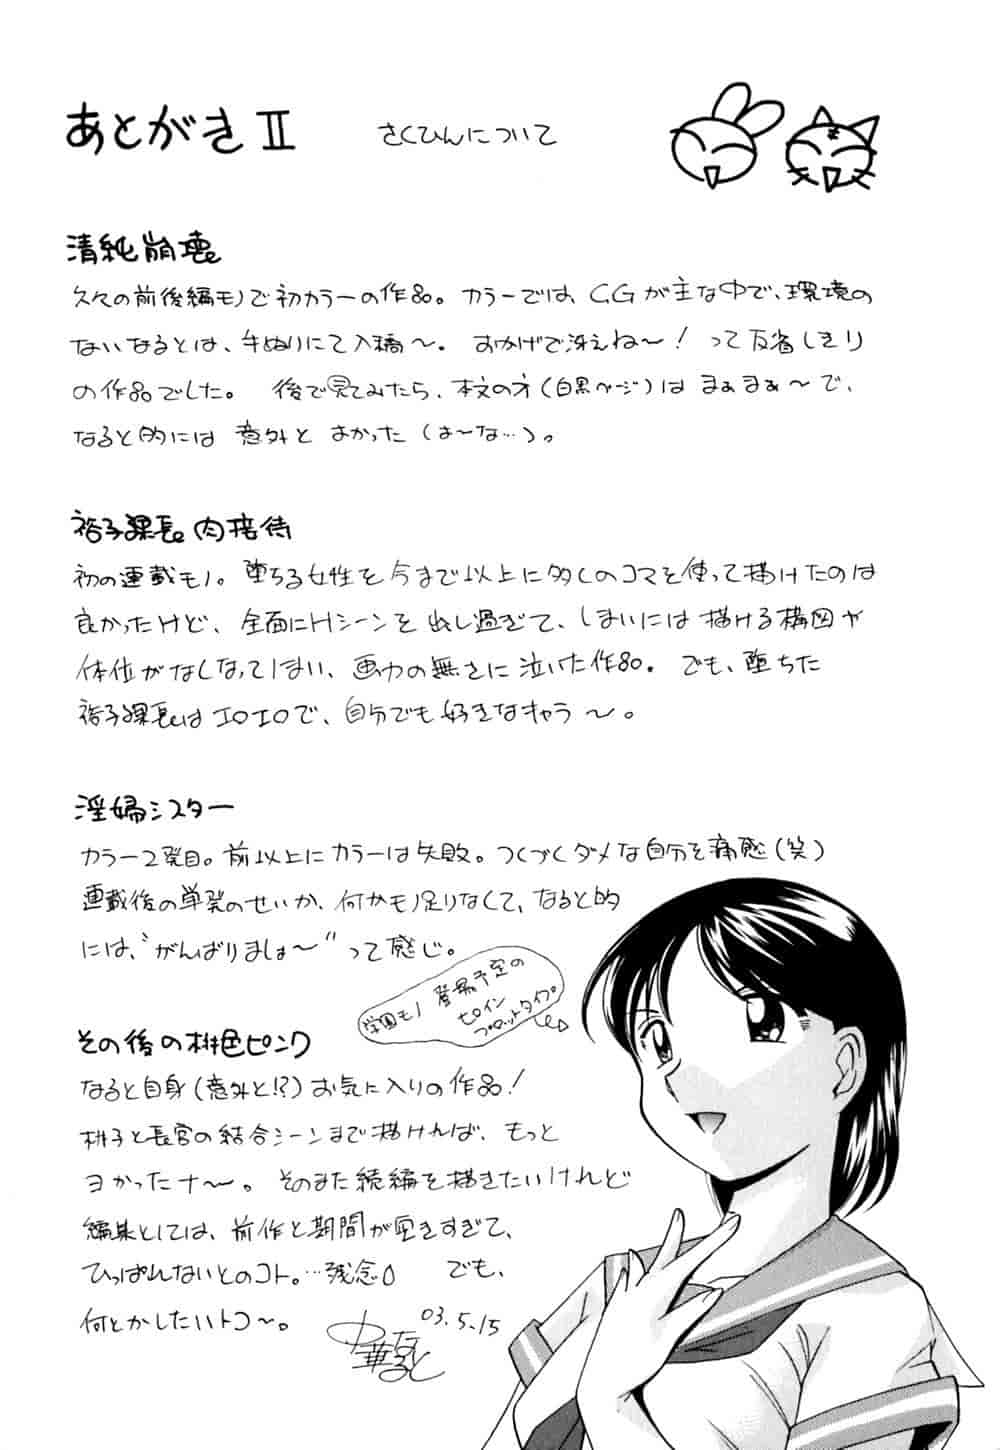 あとがきⅡ　さくひんについて
清純崩壊。
久々の前後編モノで初カラーの作品。カラーでは、CGが主な中で、環境の
ないなるとは、手ぬりにて入稿〜。おかげで冴えね〜！って反省しきり
の作品でした。後で見てみたら、本文の方（白黒ページ）はまぁまぁ〜で、
なると的には意外とよかった（は〜な…）。
裕子課長。肉接待
初の連載モノ。堕ちる女性を今まで以上に多くのコマを使って描けたのは
良かったけど、全面にHシーンを出し過ぎて、しまいには描ける構図や
体位がなくなってしまい、画力の無さに泣いた作品。でも、堕ちた
裕子課長はエロエロで、自分でも好きなキャラ〜。
淫婦シスター
カラー2発目。前以上にカラーは失敗。つくづくダメな自分を痛感（笑）
連載後の単発のせいか、何かモノ足りなくて、なると的
には、“がんばりましょ〜”って感じ。
学園モノ登場予定の
ヒロイン
プロットタイプ
その後の桃色ピンク
なると自身（意外と!?）お気に入りの作品！
桃子と長官の結合シーンまで描ければ、もっと
ヨかったナ〜。そのまた続編を描きたいけれど
編集としては、前作と期間が空きすぎて、
ひっぱれないとのコト。…残念　でも、
何とかしたいトコ〜。
03.5.15
中華なると